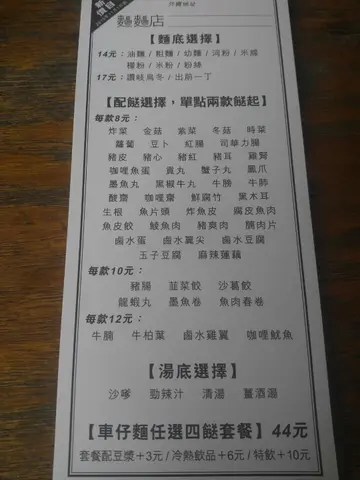 麵麵店
【麵底選擇】
14元：油麵 / 粗麵 / 幼麵 / 河粉 / 米線
檬粉 / 米粉 / 粉絲
17元：讚岐烏冬 / 出前一丁
【配餸選擇，單點兩款餸起】
每款8元：
炸菜 金菇 紫菜 冬菇 時菜
蘿蔔 豆卜 紅腸 司華力腸
豬皮 豬心 豬紅 豬耳 雞腎
咖喱魚蛋 貢丸 蟹子丸 鳳爪
墨魚丸 黑椒牛丸 牛膀 牛肺
酸齋 咖喱齋 鮮腐竹 黑木耳
生根 魚片頭 炸魚皮 腐皮魚肉
魚皮餃 鯪魚肉 豬爽肉 腩肉片
鹵水蛋 鹵水翼尖 鹵水豆腐
玉子豆腐 麻辣蓮藕
每款10元：
豬腸 韮菜餃 沙葛餃
龍蝦丸 墨魚卷 魚肉春卷
每款12元：
牛腩 牛柏葉 鹵水雞翼 咖喱魷魚
【湯底選擇】
沙嗲 勁辣汁 清湯 薑酒湯
【車仔麵任選四餸套餐】44元
套餐配豆漿+3元 / 冷熱飲品+6元 / 特飲+10元